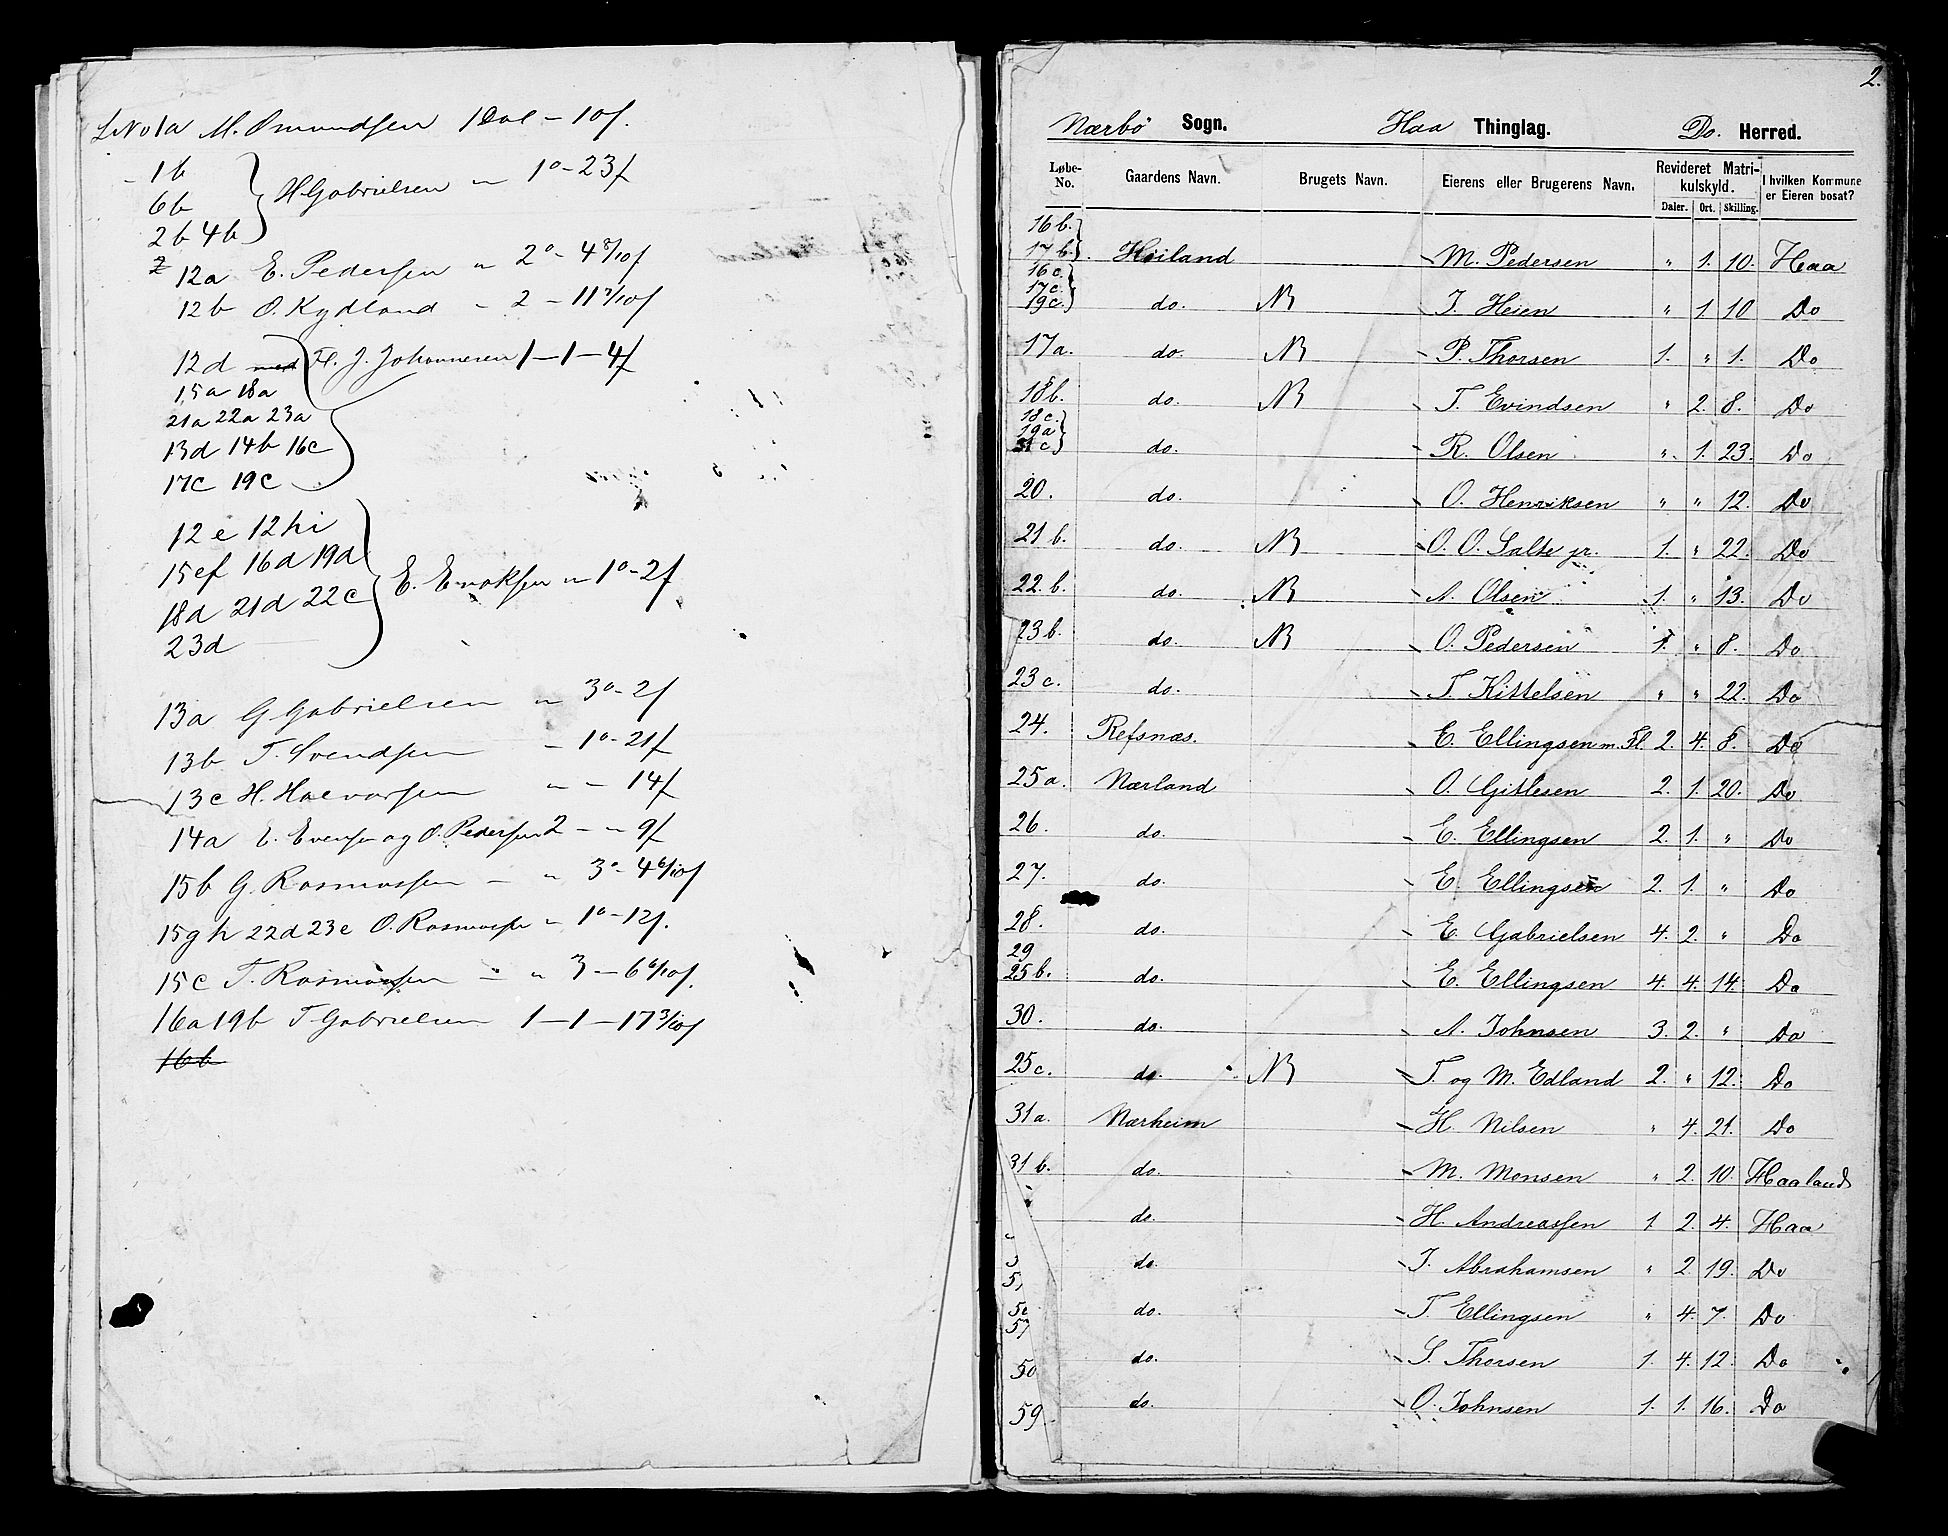 LNo 1a M. Omundsen 1 Dal – 10 f.
1b
6b } H Gabrielsen „ 1° – 23 f
2b 4b
12a E. Pedersen „ 2° – 4 8/10 f
12b O. Kydland – 2 – 11 3/10 f
12d med H. J. Johannesen 1 – 1 – 4 f
15a 18a
21a 22a 23a
13d 14b 16c
17c 19c
12e 12hi
15ef 16d 19d
18d 21d 22c } E. Enoksen „ 1° – 2 f
23d
13a G Gabrielsen „ 3° – 2 f
13b T. Svendsen – 1° – 21 f
13c H. Halvorsen „ – 14 f
14a E. Evensen og O. Pedersen 2 – „ 9 f
15b G. Rasmussen – „ 3° – 4 6/10 f
15gh 22d 23e O. Rasmussen „ 1° – 12 f.
15c T. Rasmussen – „ 3 – 6 6/10 f.
16a 19b T Gabrielsen 1 – 1 – 17 3/10 f
16b
2.
Nærbø Sogn. Haa Thinglag. Do. Herred.
Løbe-No. Gaardens Navn. Brugets Navn. Eierens eller Brugerens Navn. Revideret Matrikulskyld. I hvilken Kommune er Eieren bosat?
Daler. Ort. Skilling.
16 b.
17 b. Høiland M. Pedersen „ 1. 10. Haa
16 c.
17 c.
19 c. do. NB J. Heien „ 1. 10 Do
17 a. do. NB P. Thorsen 1. „ 1. Do
18 b. do. NB T. Evindsen „ 2. 8. Do
18 c.
19 a
21 c do. R. Olsen „ 1. 23. Do
20. do. O. Henriksen „ „ 12. Do
21 b. do. NB O. O. Salte jr. 1. „ 22. Do
22. b. do. NB A. Olsen 1. „ 13. Do
23 b. do. NB O. Pedersen 1. „ 8. Do
23 c. do. T Kittelsen „ „ 22. Do
24. Refsnæs. E. Ellingsen m. Fl. 2. 4. 8. Do
25 a. Nærland O. Gitlesen 2. 1. 20. Do
26. do. E. Ellingsen 2. 1. „ Do
27. do. E. Ellingsen 2. 1. „ Do
28. do. E. Gabrielsen 4. 2. „ Do
29
25 b. do. E. Ellingsen 4. 4. 14. Do
30. do. A. Johnsen 3. 2. „ Do
25 c. do. NB T. og M. Edland 2. „ 12. Do
31 a. Nærheim H. Nilsen „ 4. 21. Do
31 b. do. M. Monsen „ 2. 10. Haaland
do. H. Andreassen 1. 2. 4. Haa
do. J. Abrahamsen „ 2. 19. Do
do. T. Ellingsen „ 4. 7. Do
50 do. S. Thorsen 1. 4. 12. Do
59 do. O. Johnsen 1. 1. 16. Do